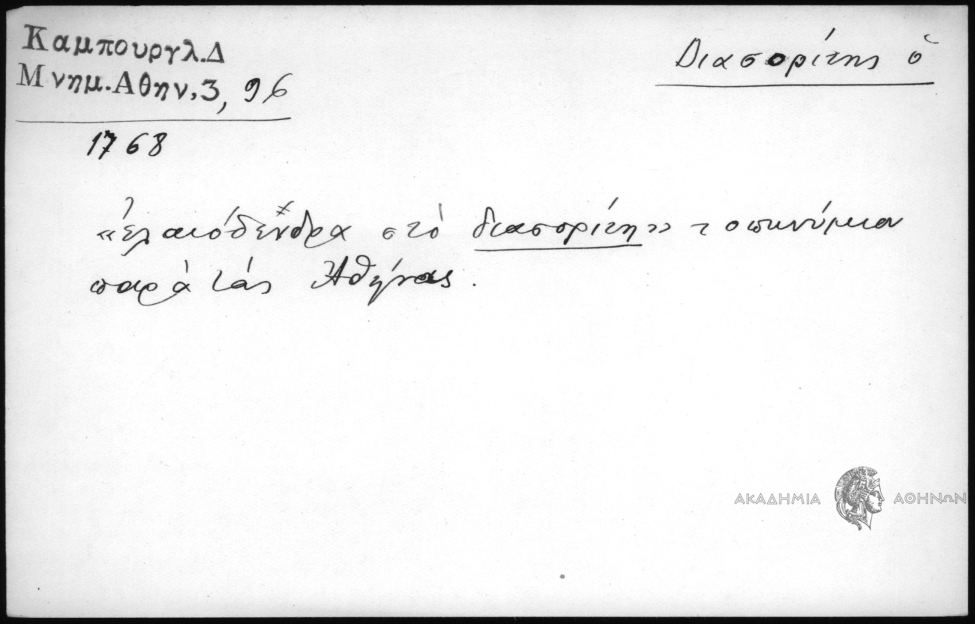 Καμπουργλ.Δ
Μνημ.Αθην.3, 96
Διασορίτης ὁ
1768
«ἐλαιόδενδρα στὸ διασορίτη» τοπωνύμιον
παρὰ τὰς Ἀθήνας.
ΑΚΑΔΗΜΙΑ ΑΘΗΝΩΝ